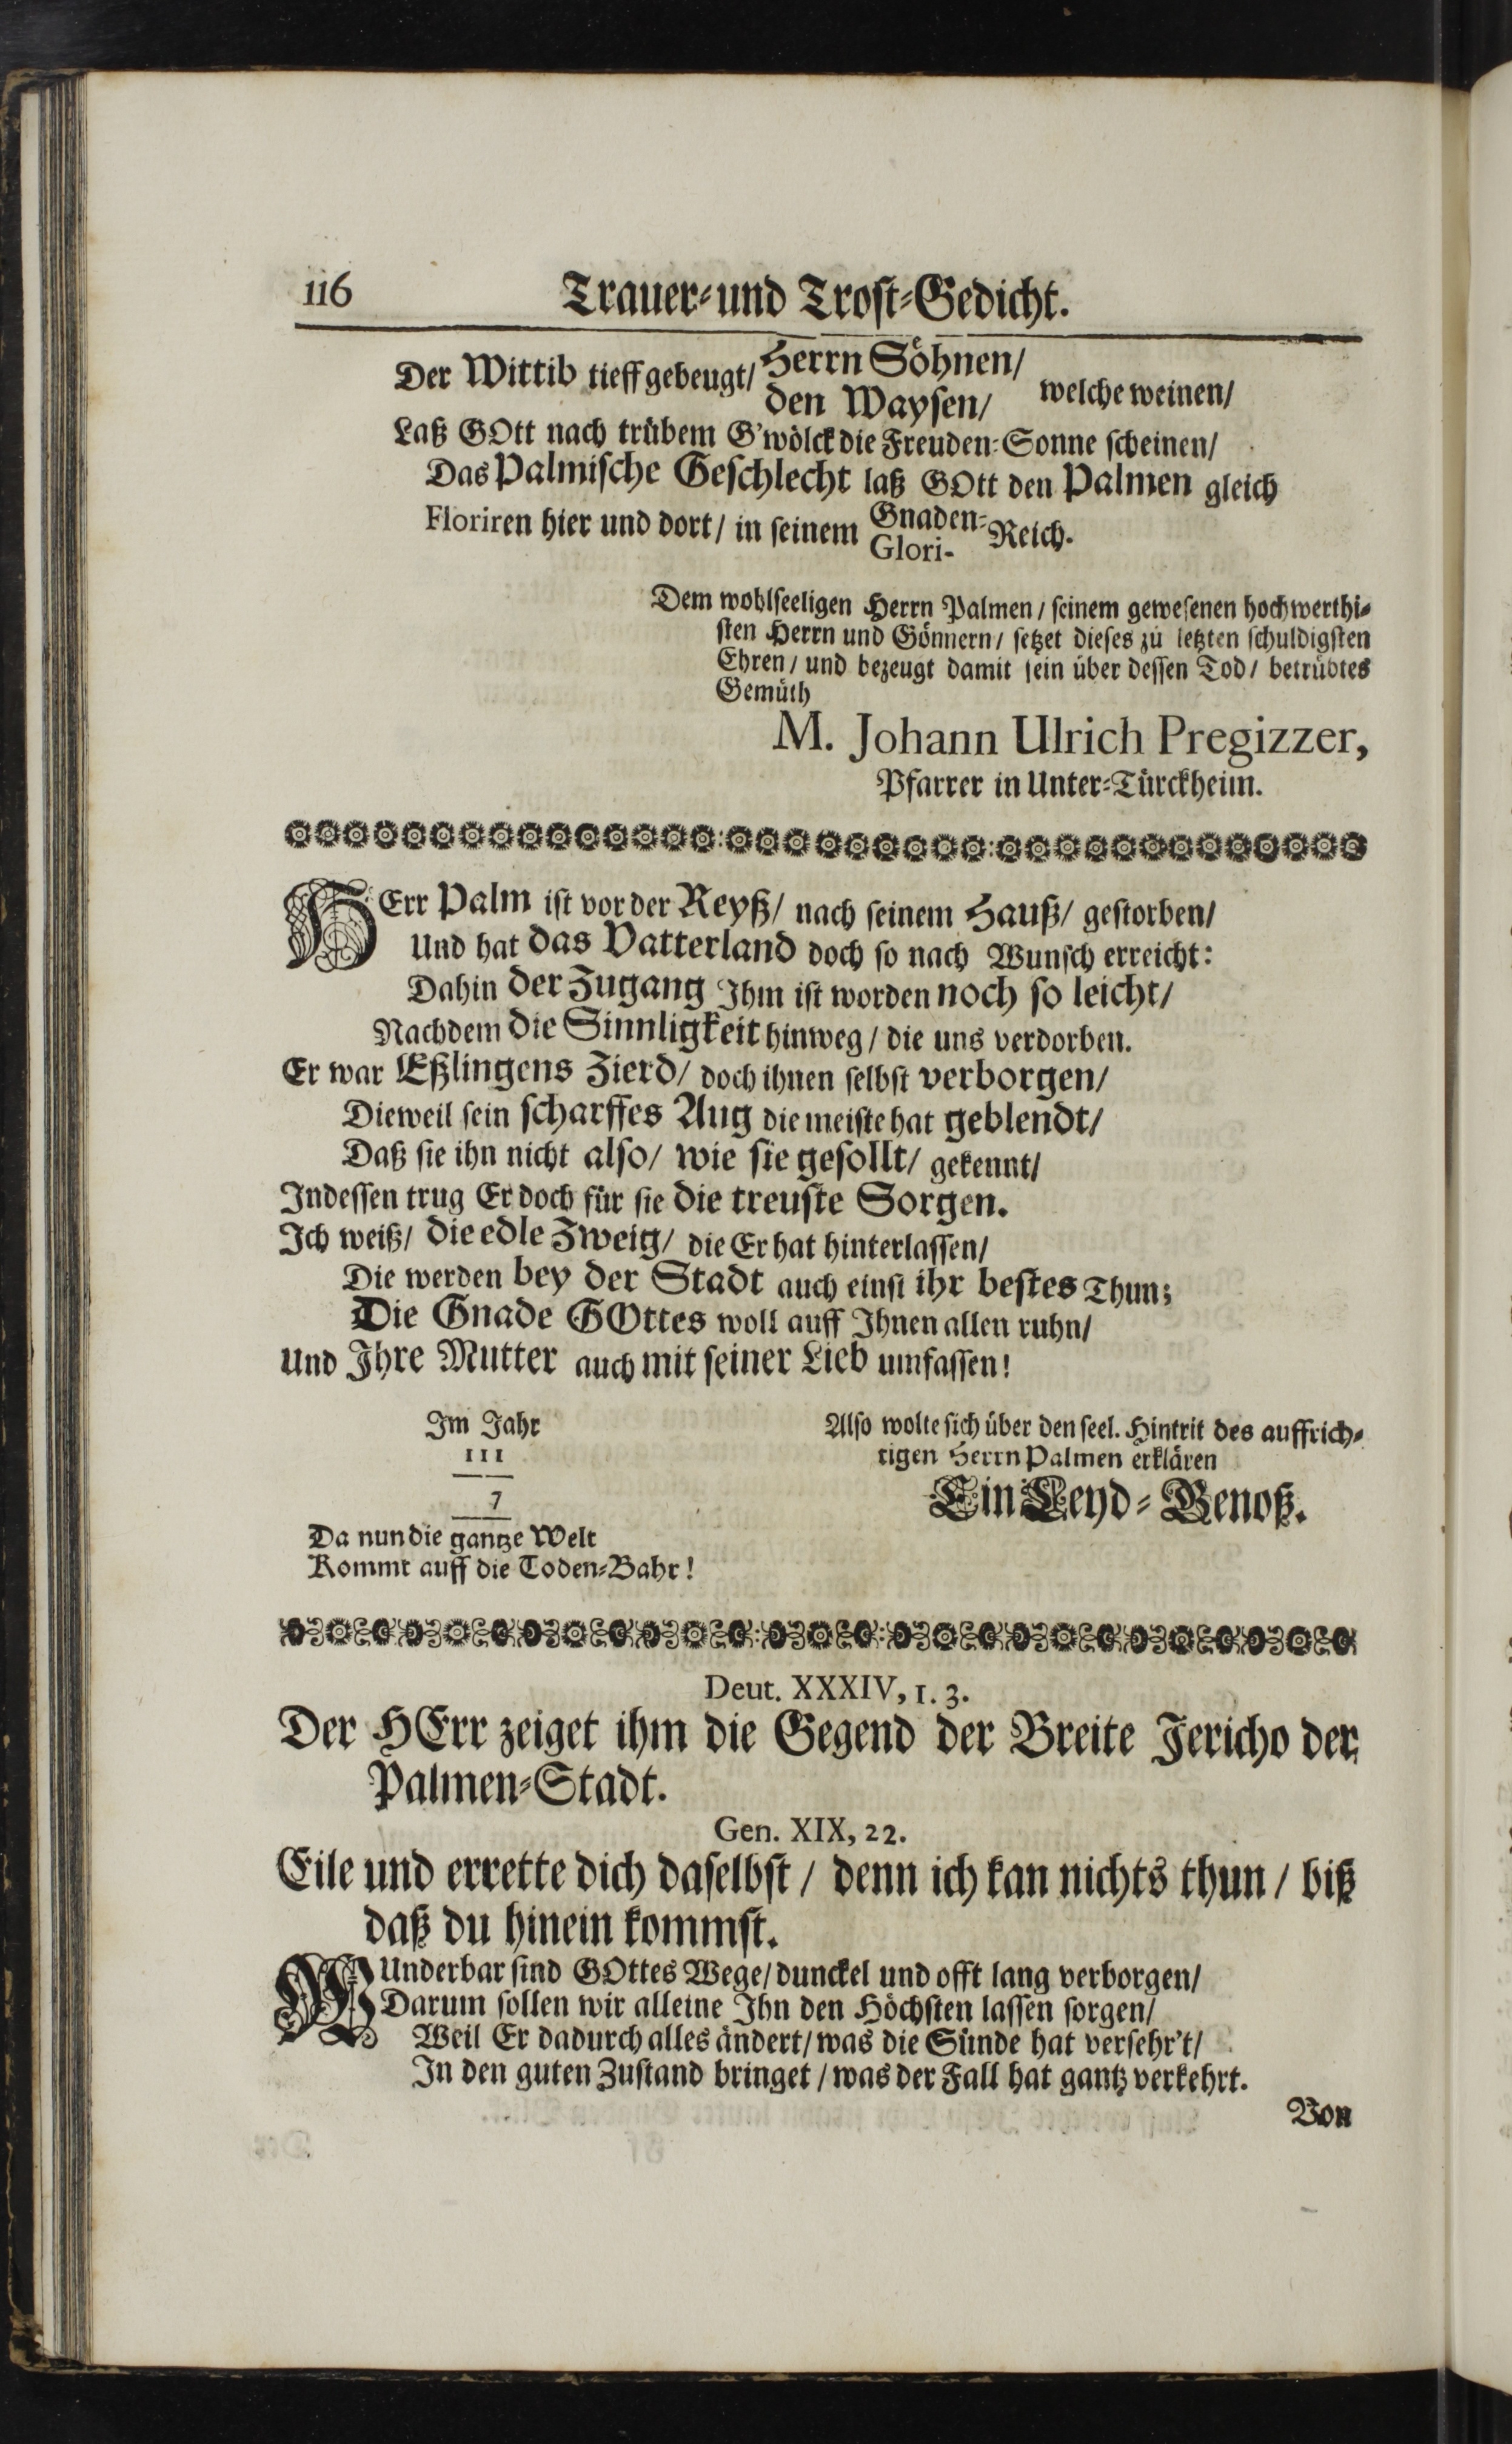 116 Trauer-und Trost-Gedicht.
Der Wittib tieff gebeugt/ Herrn Söhnen/
den Waysen/ welche weinen/
Laß GOtt nach trübem G'wölck die Freuden-Sonne scheinen/
Das Palmische Geschlecht laß GOtt den Palmen gleich
Floriren hier und dort/ in seinem Gnaden-
Glori- Reich.
Dem wohlseeligen Herrn Palmen/ seinem gewesenen hochwerthi-
sten Herrn und Gönnern/ setzet dieses zu letzten schuldigsten
Ehren/ und bezeugt damit sein über dessen Tod/ betrübtes
Gemüth
M. Johann Ulrich Pregizzer,
Pfarrer in Unter-Türckheim.
HErr Palm ist vor der Reyß/ nach seinem Hauß/ gestorben/
Und hat das Vatterland doch so nach Wunsch erreicht:
Dahin der Zugang Ihm ist worden noch so leicht/
Nachdem die Sinnligkeit hinweg/ die uns verdorben.
Er war Eßlingens Zierd/ doch ihnen selbst verborgen/
Dieweil sein scharffes Aug die meiste hat geblendt/
Daß sie ihn nicht also/ wie sie gesollt/ gekennt/
Indessen trug Er doch für sie die treuste Sorgen.
Ich weiß/ die edle Zweig/ die Er hat hinterlassen/
Die werden bey der Stadt auch einst ihr bestes Thun;
Die Gnade GOttes woll auff Ihnen allen ruhn/
Und Ihre Mutter auch mit seiner Lieb umfassen!
Im Jahr
III
7
Da nun die gantze Welt
Kommt auff die Toden-Bahr!
Also wolte sich über den seel. Hintrit des auffrich-
tigen Herrn Palmen erklären
Ein Leyd-Genoß.
Deut. XXXIV, 1. 3.
Der HErr zeiget ihm die Gegend der Breite Jericho der
Palmen-Stadt.
Gen. XIX, 22.
Eile und errette dich daselbst/ denn ich kan nichts thun/ biß
daß du hinein kommst.
WUnderbar sind GOttes Wege/ dunckel und offt lang verborgen/
Darum sollen wir alleine Ihn den Höchsten lassen sorgen/
Weil Er dadurch alles ändert/ was die Sünde hat versehr't/
In den guten Zustand bringet/ was der Fall hat gantz verkehrt.
Von